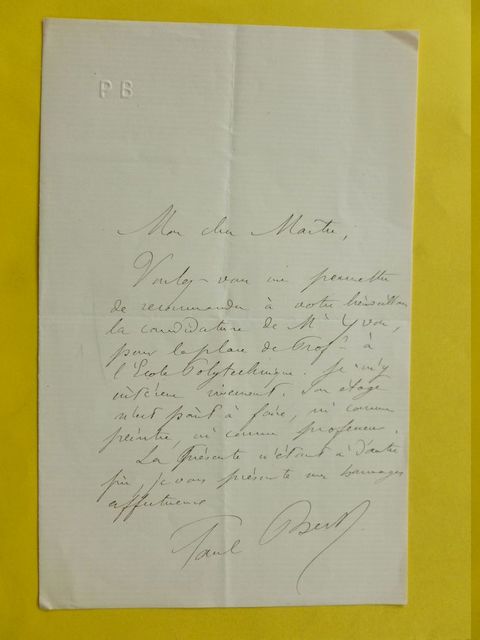 P B
Mon cher Maître,
Voulez-vous me permettre
de recommander à votre bienveillance
la candidature de Mr Yvon,
pour la place de Profr à
l'École Polytechnique. Je m'y
intéresse vivement. Son éloge
n'est point à faire, ni comme
peintre, ni comme professeur.
La présente n'étant à d'autre
fin, je vous présente mes hommages
affectueux
Paul Bert